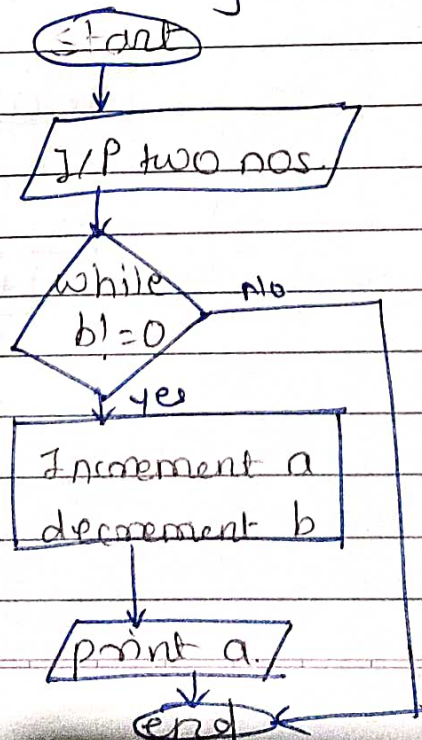 start
I/P two nos.
while
b!=0
No
yes
Increment a
decrement b
print a.
end